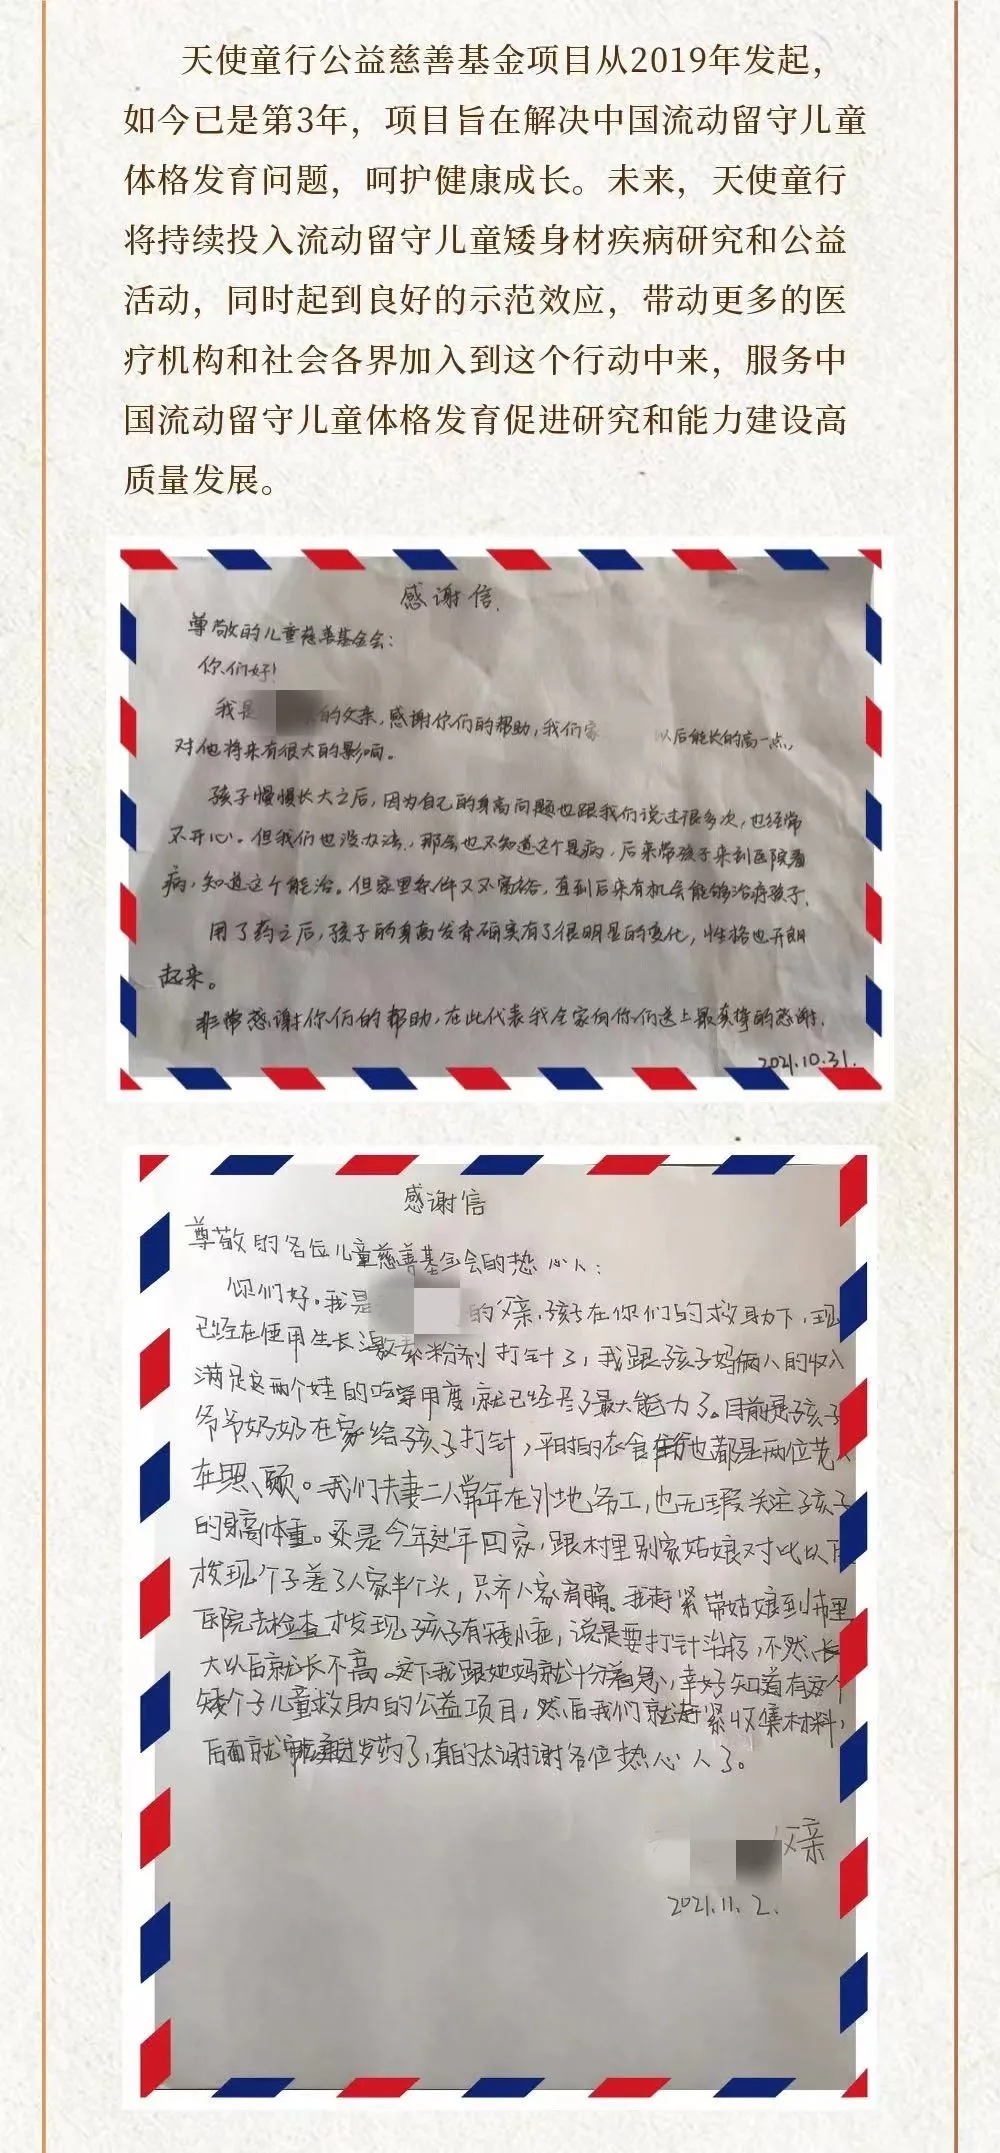 天使童行公益慈善基金项目从2019年发起，
如今已是第3年，项目旨在解决中国流动留守儿童
体格发育问题，呵护健康成长。未来，天使童行
将持续投入流动留守儿童矮身材疾病研究和公益
活动，同时起到良好的示范效应，带动更多的医
疗机构和社会各界加入到这个行动中来，服务中
国流动留守儿童体格发育促进研究和能力建设高
质量发展。
感谢信.
尊敬的儿童慈善基金会：
你们好！
我是 的父亲，感谢你们的帮助，我们家 以后能长的高一点，
对他将来有很大的影响。
孩子慢慢长大之后，因为自己的身高问题也跟我们说过很多次，也经常
不开心。但我们也没办法，那会也不知道这个是病，后来带孩子来到医院看
病，知道这个能治。但家里条件又不富裕，直到后来有机会能够治疗孩子.
用了药之后，孩子的身高发育确实有了很明显的变化，性格也开朗
起来。
非常感谢你们的帮助，在此代表我全家向你们送上最真挚的感谢.
2021.10.31.
感谢信
尊敬的各位儿童慈善基金会的热心人：
你们好。我是 的父亲.孩子在你们的救助下，现
已经在使用生长激素粉剂打针了，我跟孩子妈俩人的收入
满足这两个娃的吃穿用度，就已经尽了最大能力了。目前是孩子
爷爷奶奶在家给孩子打针，平时的衣食 也都是两位老人
在照顾。我们夫妻二人常年在外地务工，也无暇关注孩子
的身高体重。还是今年过年回家，跟村里别家姑娘对比以后
发现个子差了人家半个头，只齐人家肩膀。我赶紧带姑娘到市里
医院去检查才发现孩子有矮小症，说是要打针治疗，不然长
大以后就长不高。这下我跟她妈就十分着急，幸好知道有这个
矮个子儿童救助的公益项目，然后我们就赶紧收集材料，
后面就 发药了，真的太谢谢各位热心人了。
父亲
2021.11.2.